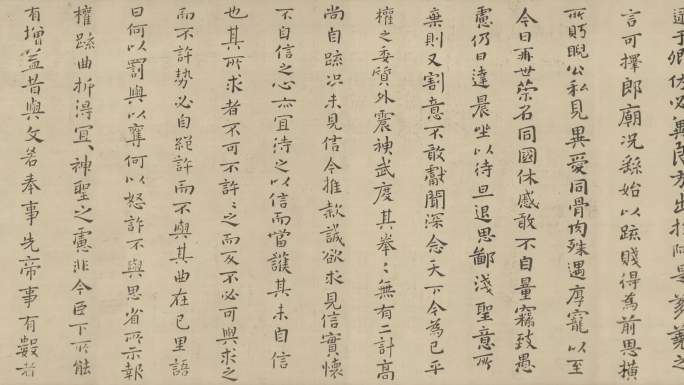 遜于卿佐必冀良方出於阿是芻蕘之
言可擇郎廟況繇始以疏賤得為前恩橫
所眄睨公私見異愛同骨肉殊遇厚寵以至
今日再世榮名同國休慼敢不自量竊致愚
慮仍日達晨坐以待旦退思鄙淺聖意所
棄則又割意不敢獻聞深念天下今為已平
權之委質外震神武度其拳〻無有二計高
尚自疏況未見信今推款誠欲求見信實懷
不自信之心亦宜待之以信而當護其未自信
也其所求者不可不許〻之而反不必可與求之
而不許勢必自絕許而不與其曲在己里語
曰何以罰與以奪何以怒許不與思省所示報
權疏曲折得宜神聖之慮非今臣下所能
有增益昔與文若奉事先帝事有數者